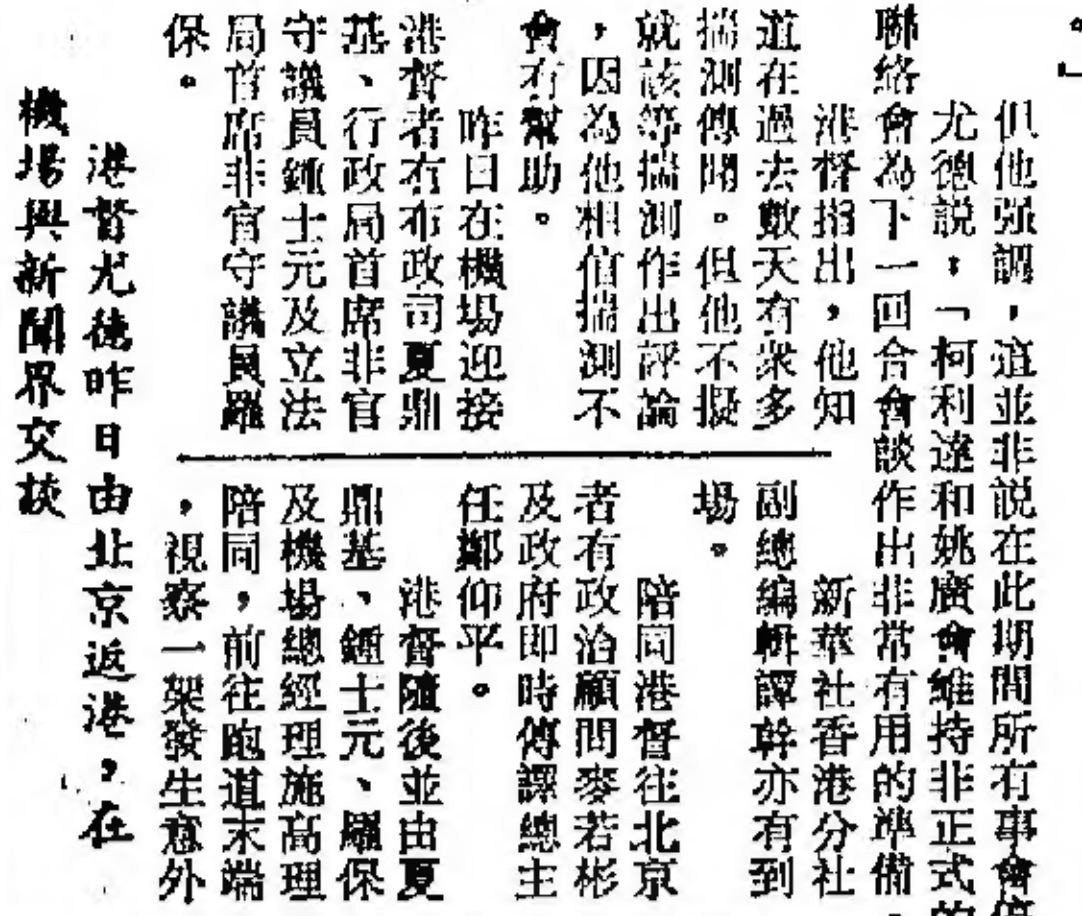 。」
但他强調，這並非説在此期間所有事會停
尤德説：「柯利達和姚廣會維持非正式的
聯絡會為下一回合會談作出非常有用的準備
港督指出，他知
道在過去數天有衆多
揣測傳聞。但他不擬
就該等揣測作出評論
，因為他相信揣測不
會有幫助。
昨日在機場迎接
港督者有布政司夏鼎
基、行政局首席非官
守議員鍾士元及立法
局首席非官守議員羅
保。
新華社香港分社
副總編輯譚幹亦有到
場。
陪同港督往北京
者有政治顧問麥若彬
及政府即時傳譯總主
任鄭仰平。
港督隨後並由夏
鼎基、鍾士元、羅保
及機場總經理施高理
陪同，前往跑道末端
，視察一架發生意外
港督尤德昨日由北京返港，在
機場與新聞界交談